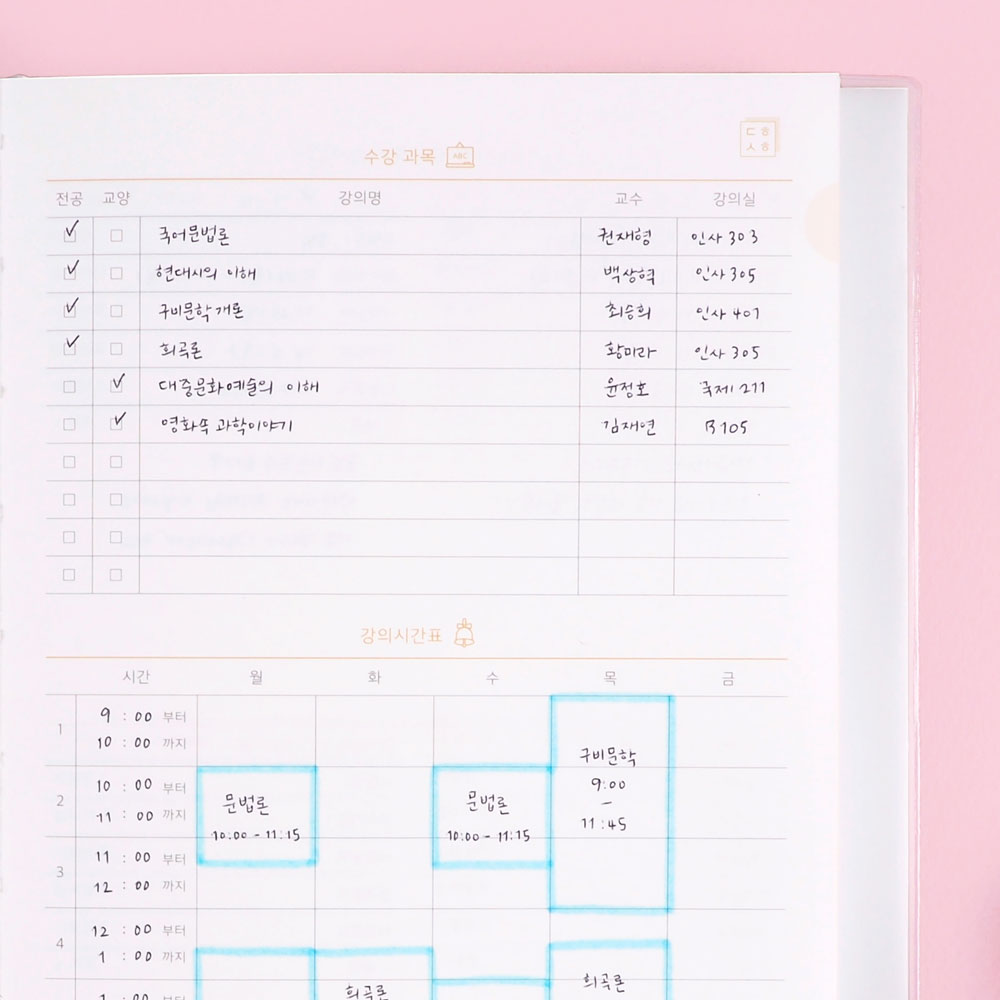 ㄷㅎ
ㅅㅎ
수강 과목 ABC
전공 교양 강의명 교수 강의실
국어문법론 권재형 인사 303
현대시의 이해 백상혁 인사 305
구비문학개론 최승희 인사 401
희곡론 황미라 인사 305
대중문화예술의 이해 윤정호 국제 211
영화속 과학이야기 김재연 B105
강의시간표
시간 월 화 수 목 금
1 9 : 00 부터
10 : 00 까지
구비문학
9:00
-
11:45
2 10 : 00 부터
11 : 00 까지
문법론
10:00 - 11:15
문법론
10:00 - 11:15
3 11 : 00 부터
12 : 00 까지
4 12 : 00 부터
1 : 00 까지
희곡론
희곡론